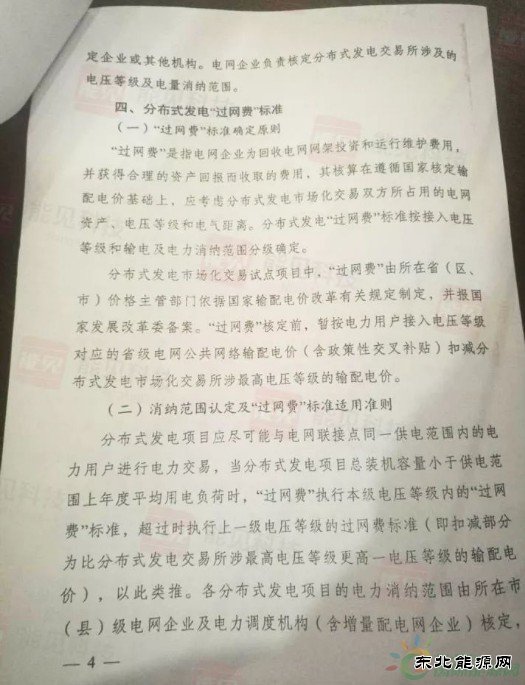 定企业或其他机构。电网企业负责核定分布式发电交易所涉及的
电压等级及电量消纳范围。
四、分布式发电“过网费”标准
（一）“过网费”标准确定原则
“过网费”是指电网企业为回收电网网架投资和运行维护费用，
并获得合理的资产回报而收取的费用，其核算在遵循国家核定输
配电价基础上，应考虑分布式发电市场化交易双方所占用的电网
资产、电压等级和电气距离。分布式发电“过网费”标准按接入电压
等级和输电及电力消纳范围分级确定。
分布式发电市场化交易试点项目中，“过网费”由所在省（区、
市）价格主管部门依据国家输配电价改革有关规定制定，并报国
家发展改革委备案。“过网费”核定前，暂按电力用户接入电压等级
对应的省级电网公共网络输配电价（含政策性交叉补贴）扣减分
布式发电市场化交易所涉最高电压等级的输配电价。
（二）消纳范围认定及“过网费”标准适用准则
分布式发电项目应尽可能与电网联接点同一供电范围内的电
力用户进行电力交易，当分布式发电项目总装机容量小于供电范
围上年度平均用电负荷时，“过网费”执行本级电压等级内的“过网
费”标准，超过时执行上一级电压等级的过网费标准（即扣减部分
为比分布式发电交易所涉最高电压等级更高一电压等级的输配电
价），以此类推。各分布式发电项目的电力消纳范围由所在市
（县）级电网企业及电力调度机构（含增量配电网企业）核定，
— 4 —
东北能源网